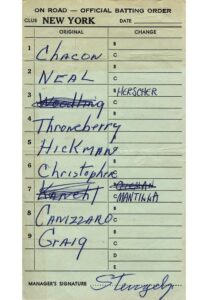 ON ROAD — OFFICIAL BATTING ORDER
CLUB NEW YORK DATE
ORIGINAL CHANGE
1 Chacon B C
2 Neal B C
3 Woodling B HERSCHER C
4 Throneberry B C
5 Hickman B C
6 Christopher B C
7 Kanehl B C MANTILLA
8 Canizzaro B C
9 Craig B C D E
MANAGER'S SIGNATURE Stengel